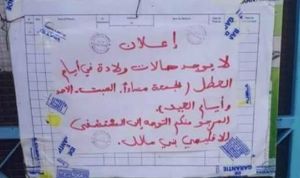 إعلان
لا يوجد حالات ولادة في أيام
العطل (الجمعة مساءاً. السبت. الأحد
وأيام العيد).
المرجو منكم التوجه إلى المستشفى
الإقليمي بني ملال.
GARANTIE